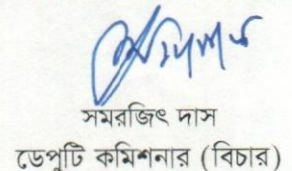 সমরজিৎ দাস
ডেপুটি কমিশনার (বিচার)